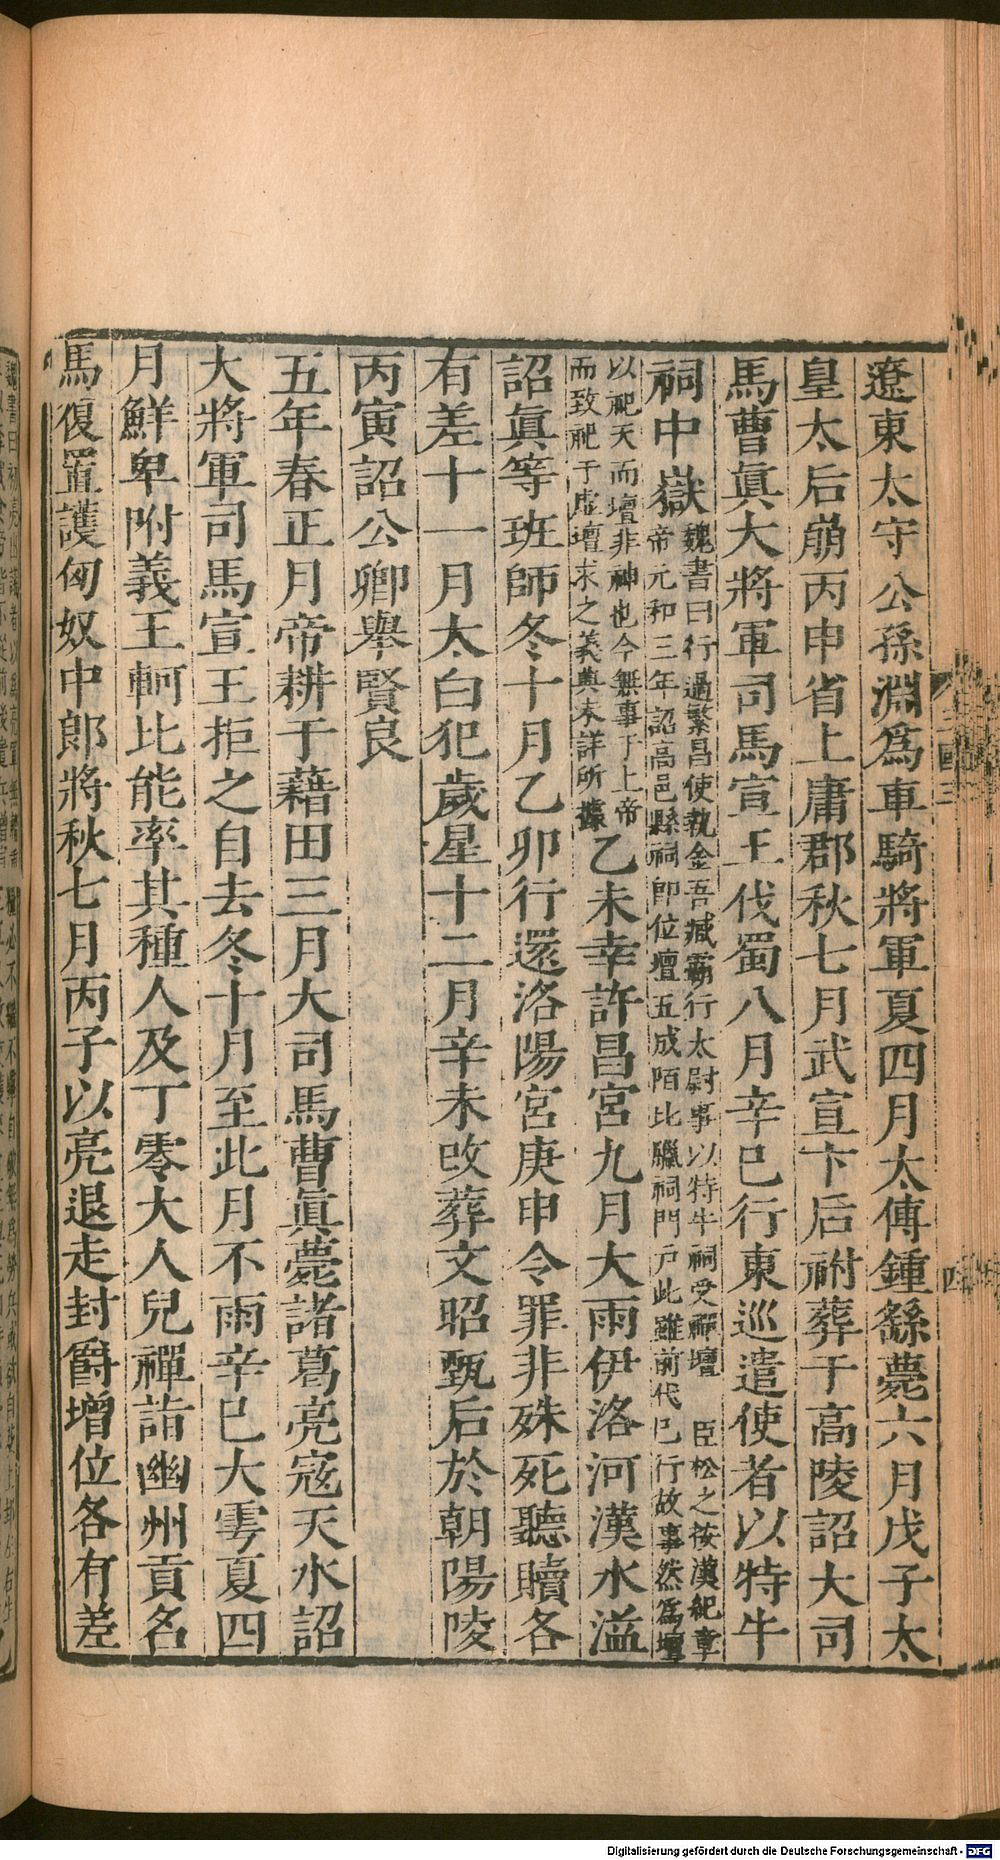 遼東太守公孫淵爲車騎將軍夏四月太傅鍾繇薨六月戊子太
皇太后崩丙申省上庸郡秋七月武宣卞后祔葬于高陵詔大司
馬曹眞大將軍司馬宣王伐蜀八月辛巳行東巡遣使者以特牛
祠中嶽
魏書曰行過繁昌使執金吾臧霸行太尉事以特牛祠受禪壇 臣松之按漢紀章
帝元和三年詔高邑縣祠即位壇五成陌比臘祠門戸此雖前代巳行故事然爲壇
以祀天而壇非神也今無事于上帝
而致祀于虛壇求之義典未詳所據
乙未幸許昌宮九月大雨伊洛河漢水溢
詔眞等班師冬十月乙卯行還洛陽宮庚申令罪非殊死聽贖各
有差十一月太白犯歲星十二月辛未改葬文昭甄后於朝陽陵
丙寅詔公卿舉賢良
五年春正月帝耕于藉田三月大司馬曹眞薨諸葛亮寇天水詔
大將軍司馬宣王拒之自去冬十月至此月不雨辛巳大雩夏四
月鮮卑附義王軻比能率其種人及丁零大人兒禪詣幽州貢名
馬復置護匈奴中郎將秋七月丙子以亮退走封爵增位各有差
三國三
四
Digitalisierung gefördert durch die Deutsche Forschungsgemeinschaft - DFG